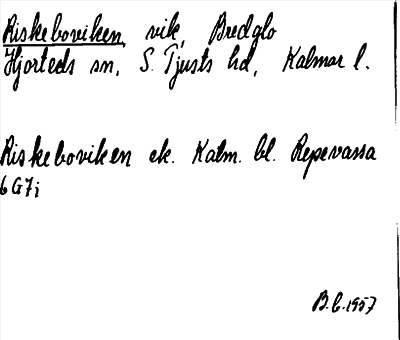 Riskeboviken, vik, Bredglo
Hjorteds sn, S. Tjusts hd, Kalmar l.
Riskeboviken ek. Kalm. bl. Repevassa
6G7i
B.C. 1957